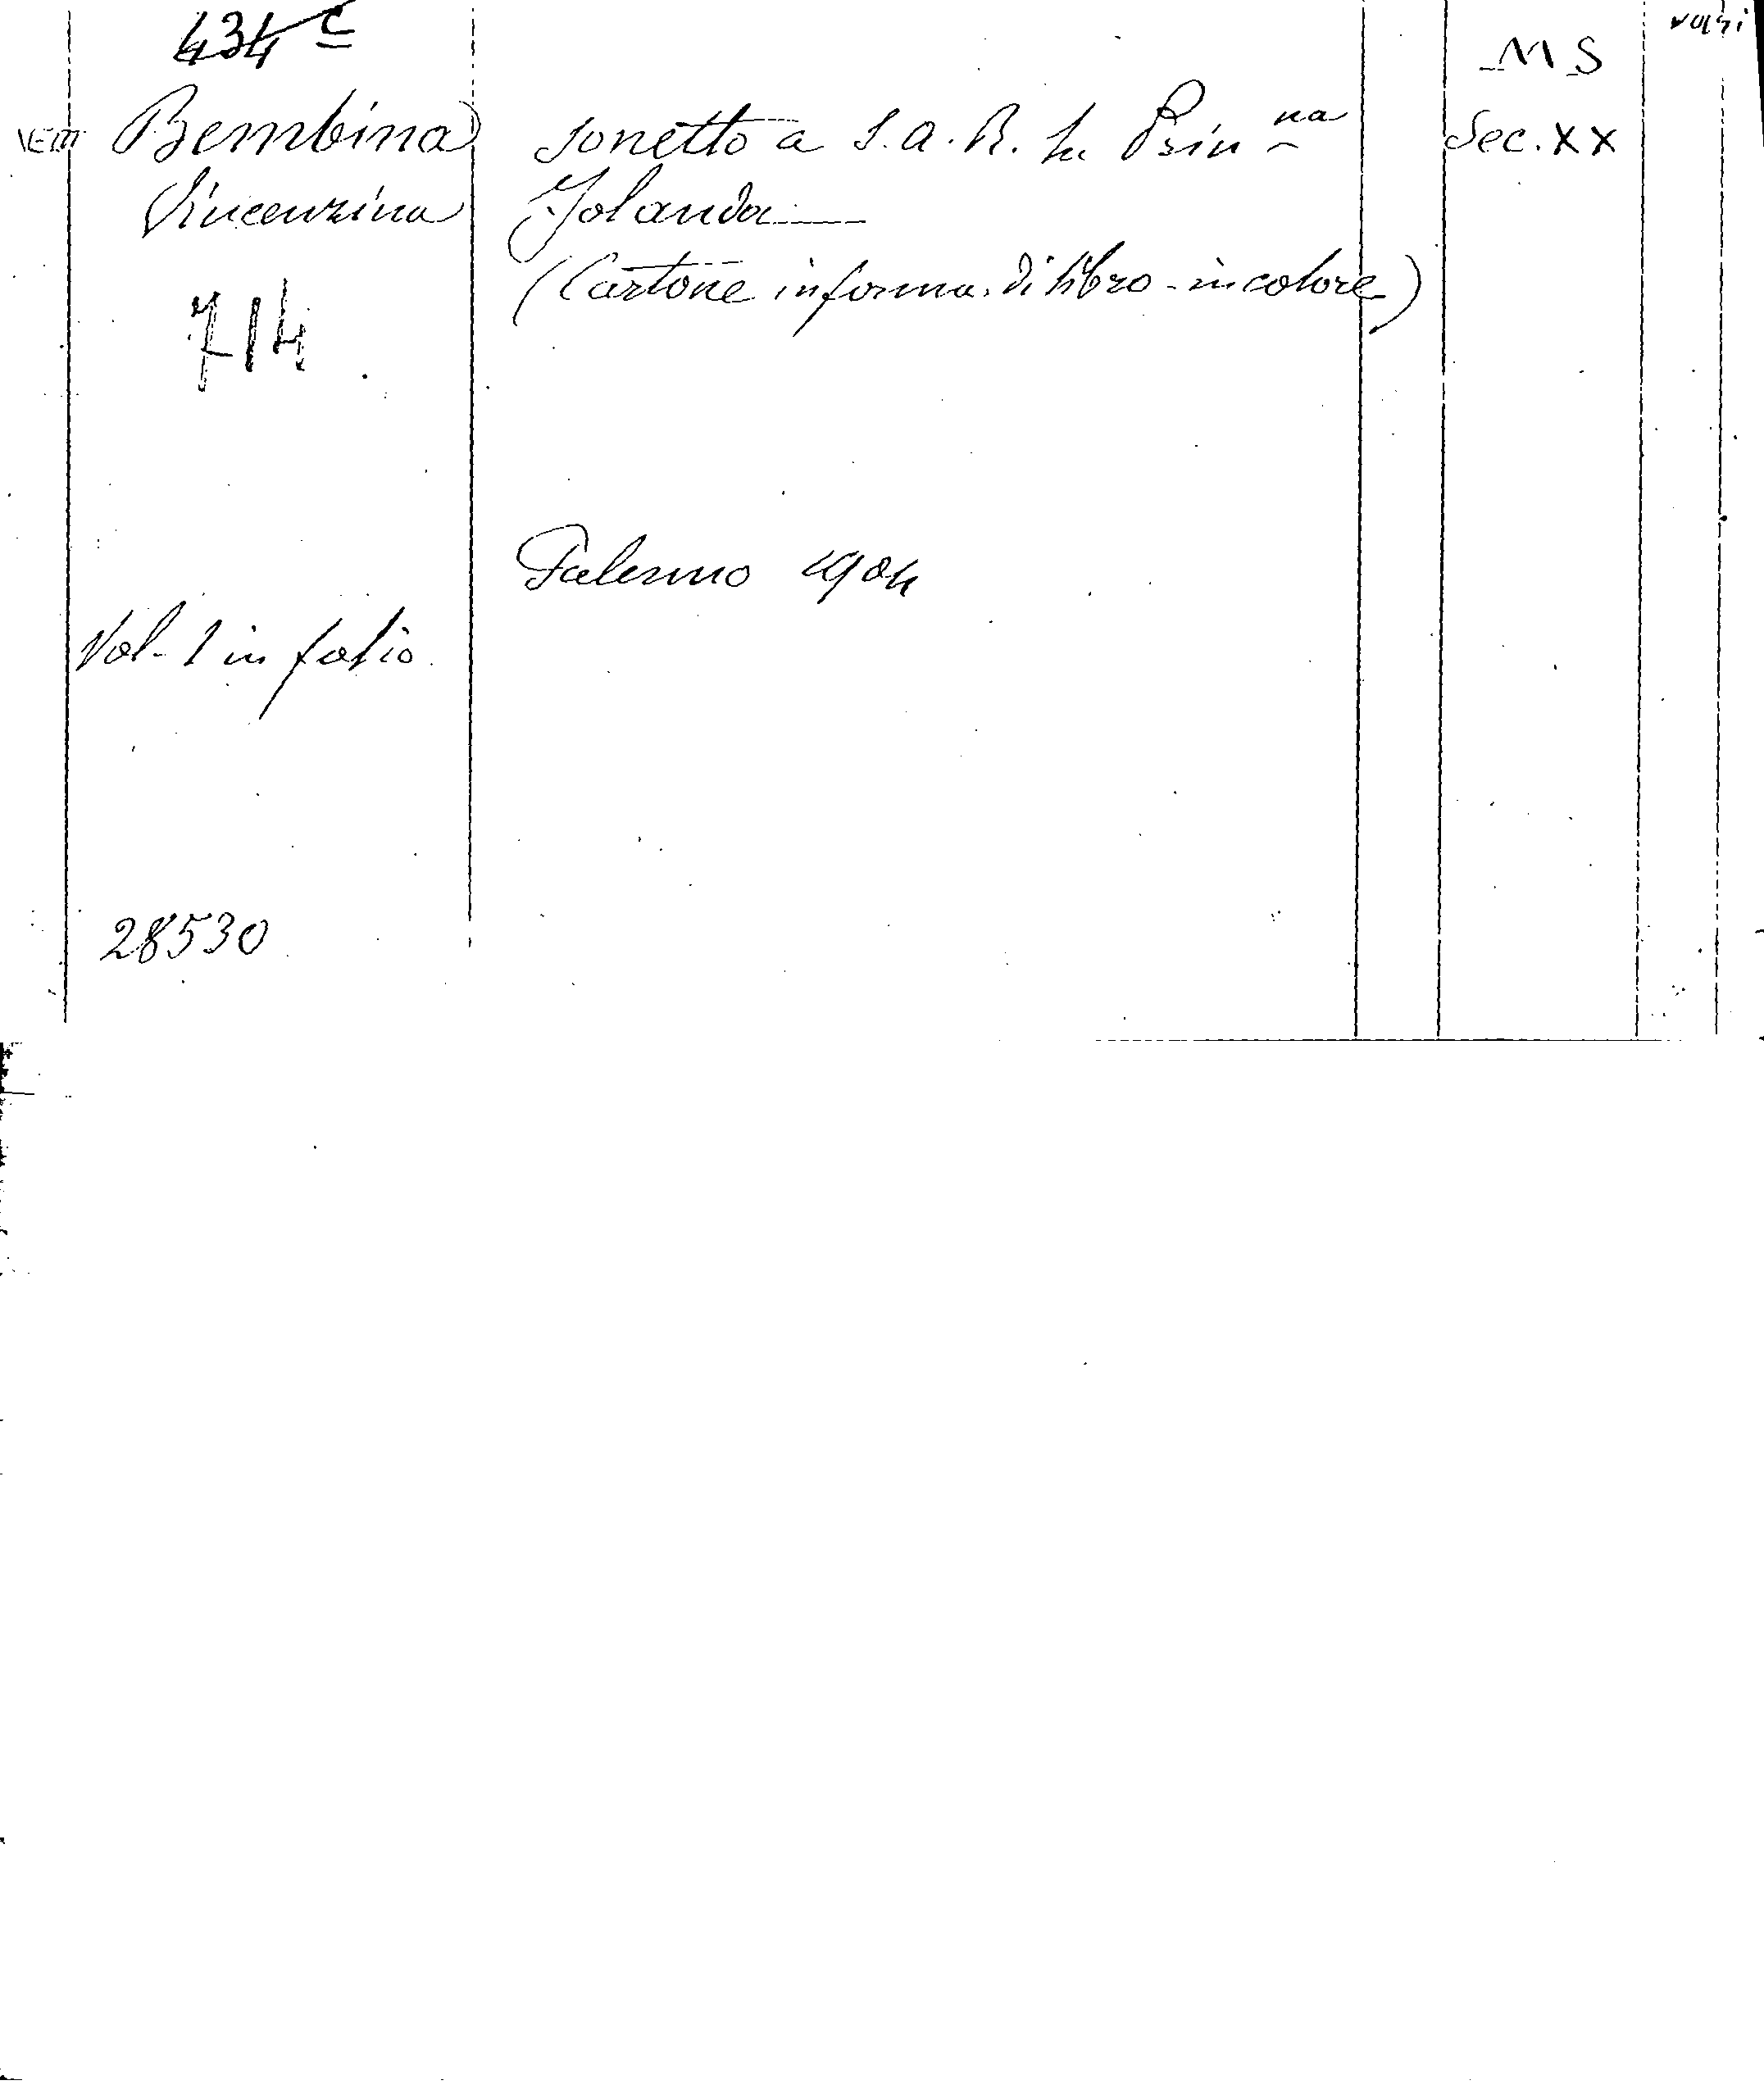 434 c
MS
Bembina sonetto a S.A.R. la Prin na Sec. XX
Vincenzina Jolanda
(Cartone in forma di libro - in colore)
714
Palermo 1904
Vol. 1 in folio
28530